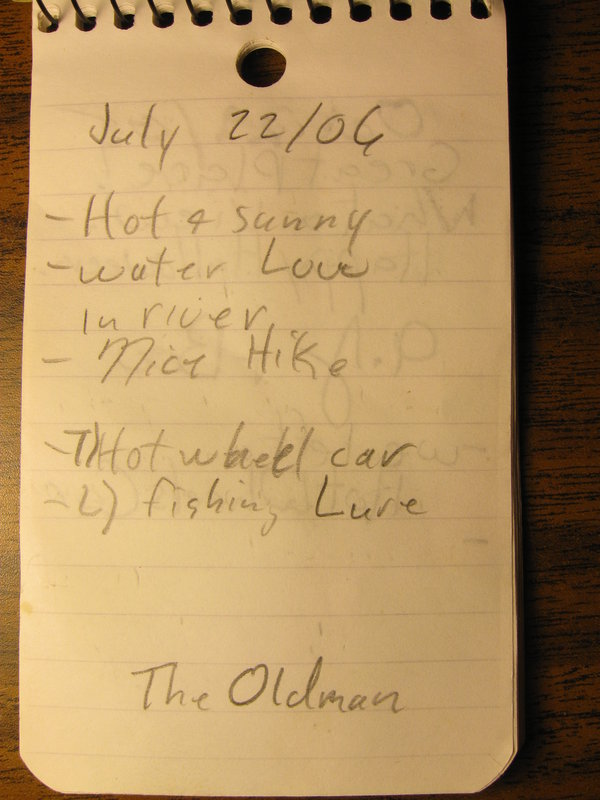 July 22/06
- Hot & sunny
- water Low
in river
- Nice Hike
- T) Hot wheel car
- L) fishing Lure
The Oldman